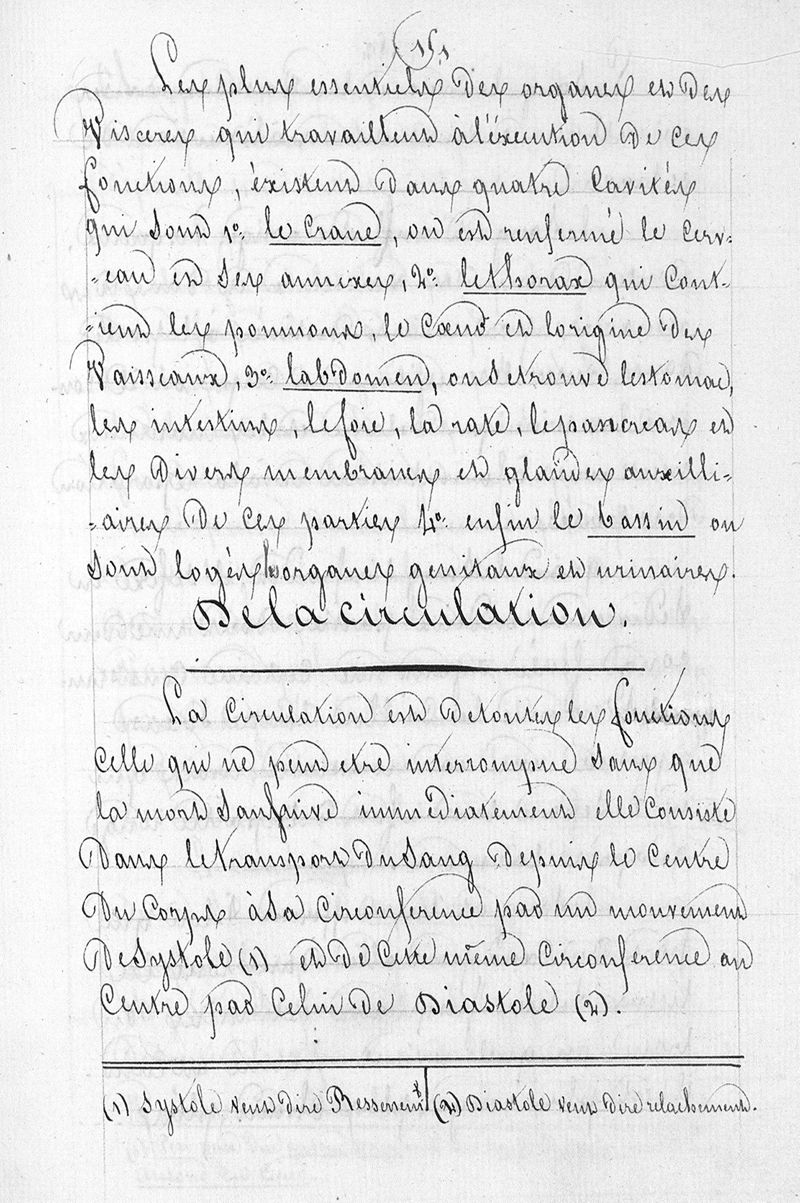 151
Les plus essentiels des organes et des
Visceres qui travaillent à l'éxecution de ces
fonctions, éxistent dans quatre Cavités
qui sont 1º. le Crane, ou est renfermé le Cerv-
-eau et ses annexes, 2º. le thorax qui Cont-
-ient les poumons, le Cœur et lorigine des
Vaisseaux, 3º. labdomen, ou se trouve lestomac,
les intestins, le foie, la rate, le pancreas et
les Divers membranes et glandes auxilli-
-aires de ces parties 4º. enfin le bassin ou
sont logés les organes genitaux et urinaires.
De la circulation.
La Circulation est de toutes les fonctions
Celle qui ne peut etre interrompue sans que
la mort sansuive immediatement elle Consiste
Dans le transport du Sang depuis le Centre
Du Corps à sa Circonference par un mouvement
De Systole (1) et de Cette même Circonference au
Centre par Celui de Diastole (2).
(1) Systole veut dire Resserremt. (2) Diastole veut dire relachement.